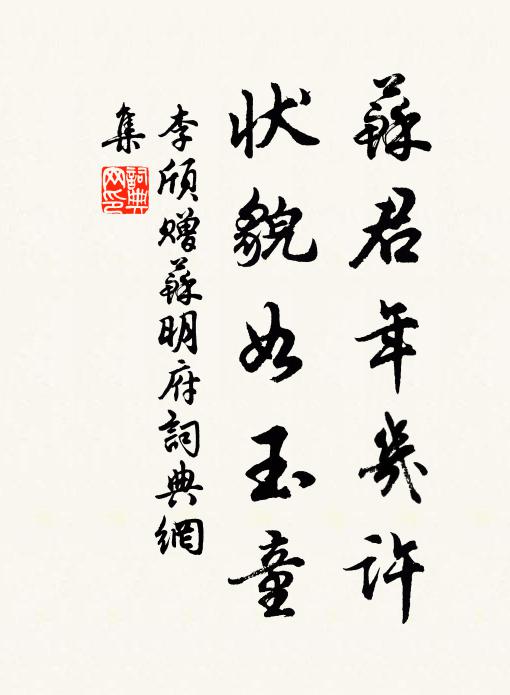 蘇君年幾許
狀貌如玉童
李頎贈蘇明府詞典網
集
詞典
网印